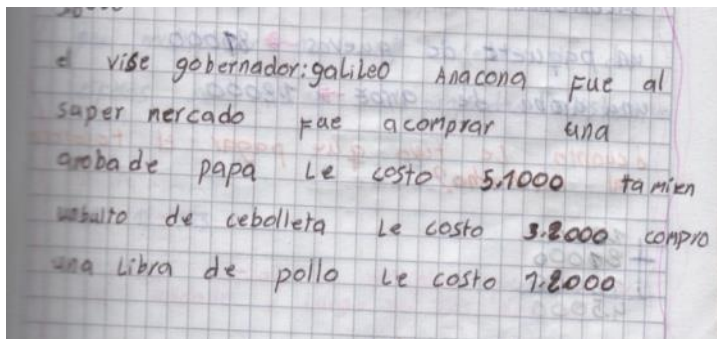 el vise gobernador:galileo Anacona Fue al
super mercado Fue acomprar una
arobade papa Le costo 5.1000 tamien
unbulto de cebolleta Le costo 3.2000 compro
una Libra de pollo Le costo 7.2000